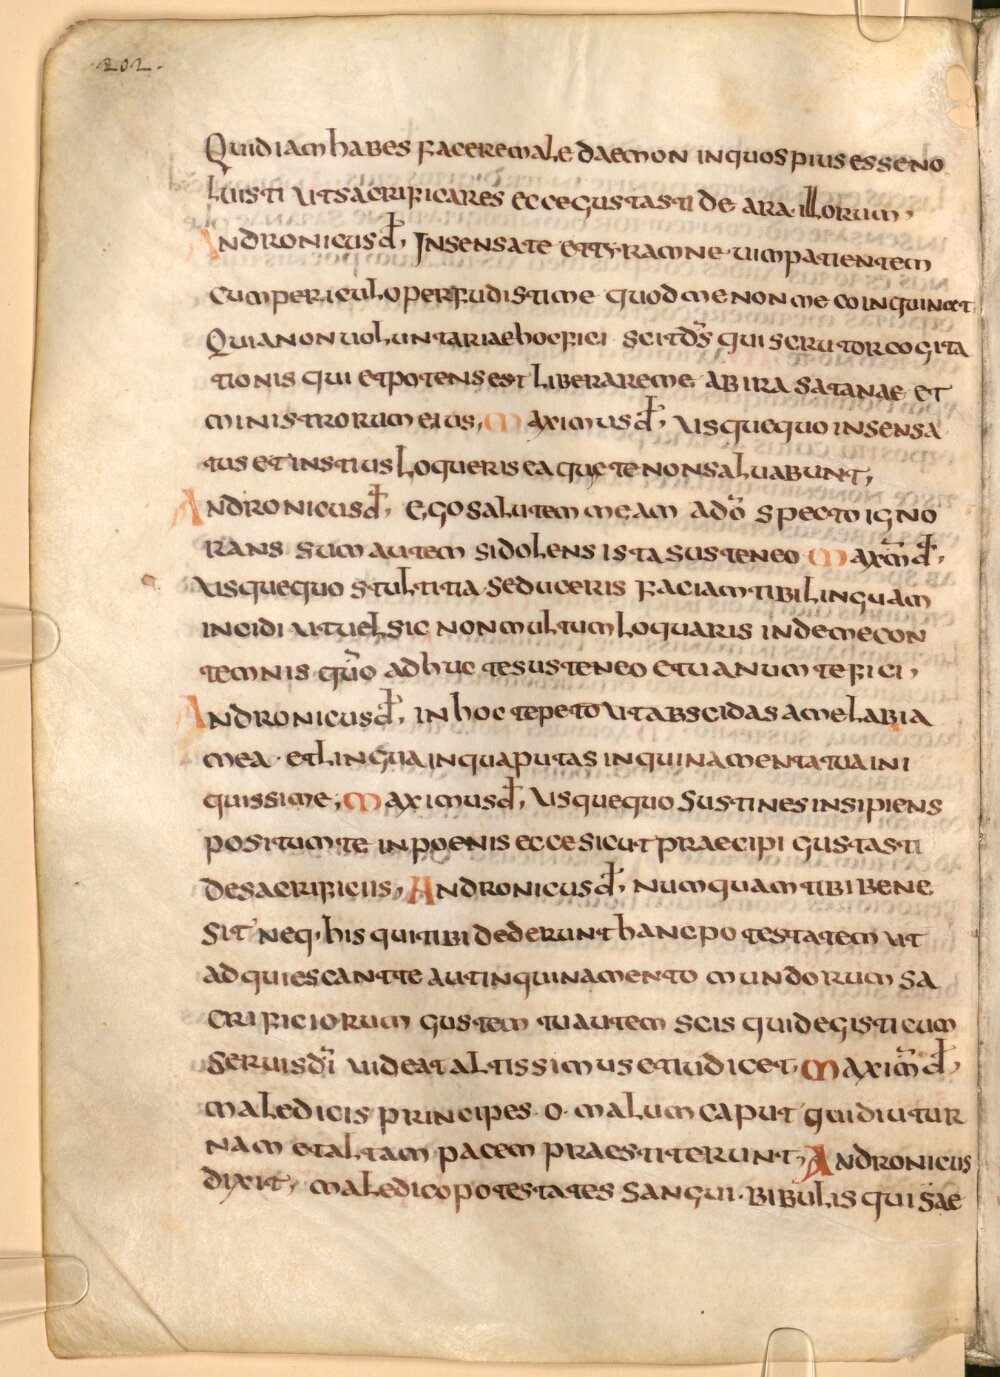 202.
Quid iam habes facere male daemon in quos pius esse no
luisti ut sacrificares ecce gustasti de ara illorum,
Andronicus đ, Insensate et tyramne uim patientem
cum periculo perfudisti me quod me non me coinquinet
Quia non uoluntariae hoc fici scit d̄s qui scrutor cogita
tionis qui et potens est liberare me ab ira satanae et
ministrorum eius, Maximus đ, Usquequo insensa
tus et instius loqueris ea que te non saluabunt,
Andronicus đ, Ego salutem meam ad d̄o specto igno
rans sum autem si dolens ista susteneo Maxm̄ đ,
Usquequo stultitia seduceris faciam tibi linguam
incidi ut uel sic non multum loquaris inde me con
temnis qūo adhuc te susteneo et uanum te fici,
Andronicus đ, in hoc te peto ut abscidas a me labia
mea · et lingua in qua putas inquinamenta tua ini
quissime, Maximus đ, Usquequo sustines insipiens
positum te in poenis ecce sicut praecipi gustasti
de sacrificiis, Andronicus đ, numquam tibi bene
sit neq, his qui tibi dederunt hanc potestatem ut
adquiescant te aut inquinamento mundorum sa
crificiorum gustem tu autem scis quid egisti cum
seruis d̄i uideat altissimus et iudicet, Maxim̄ đ,
maledicis principes · o · malum caput qui diutur
nam et altam pacem praestiterunt, Andronicus
dixit, maledico potestates sangui·bibulis qui sae